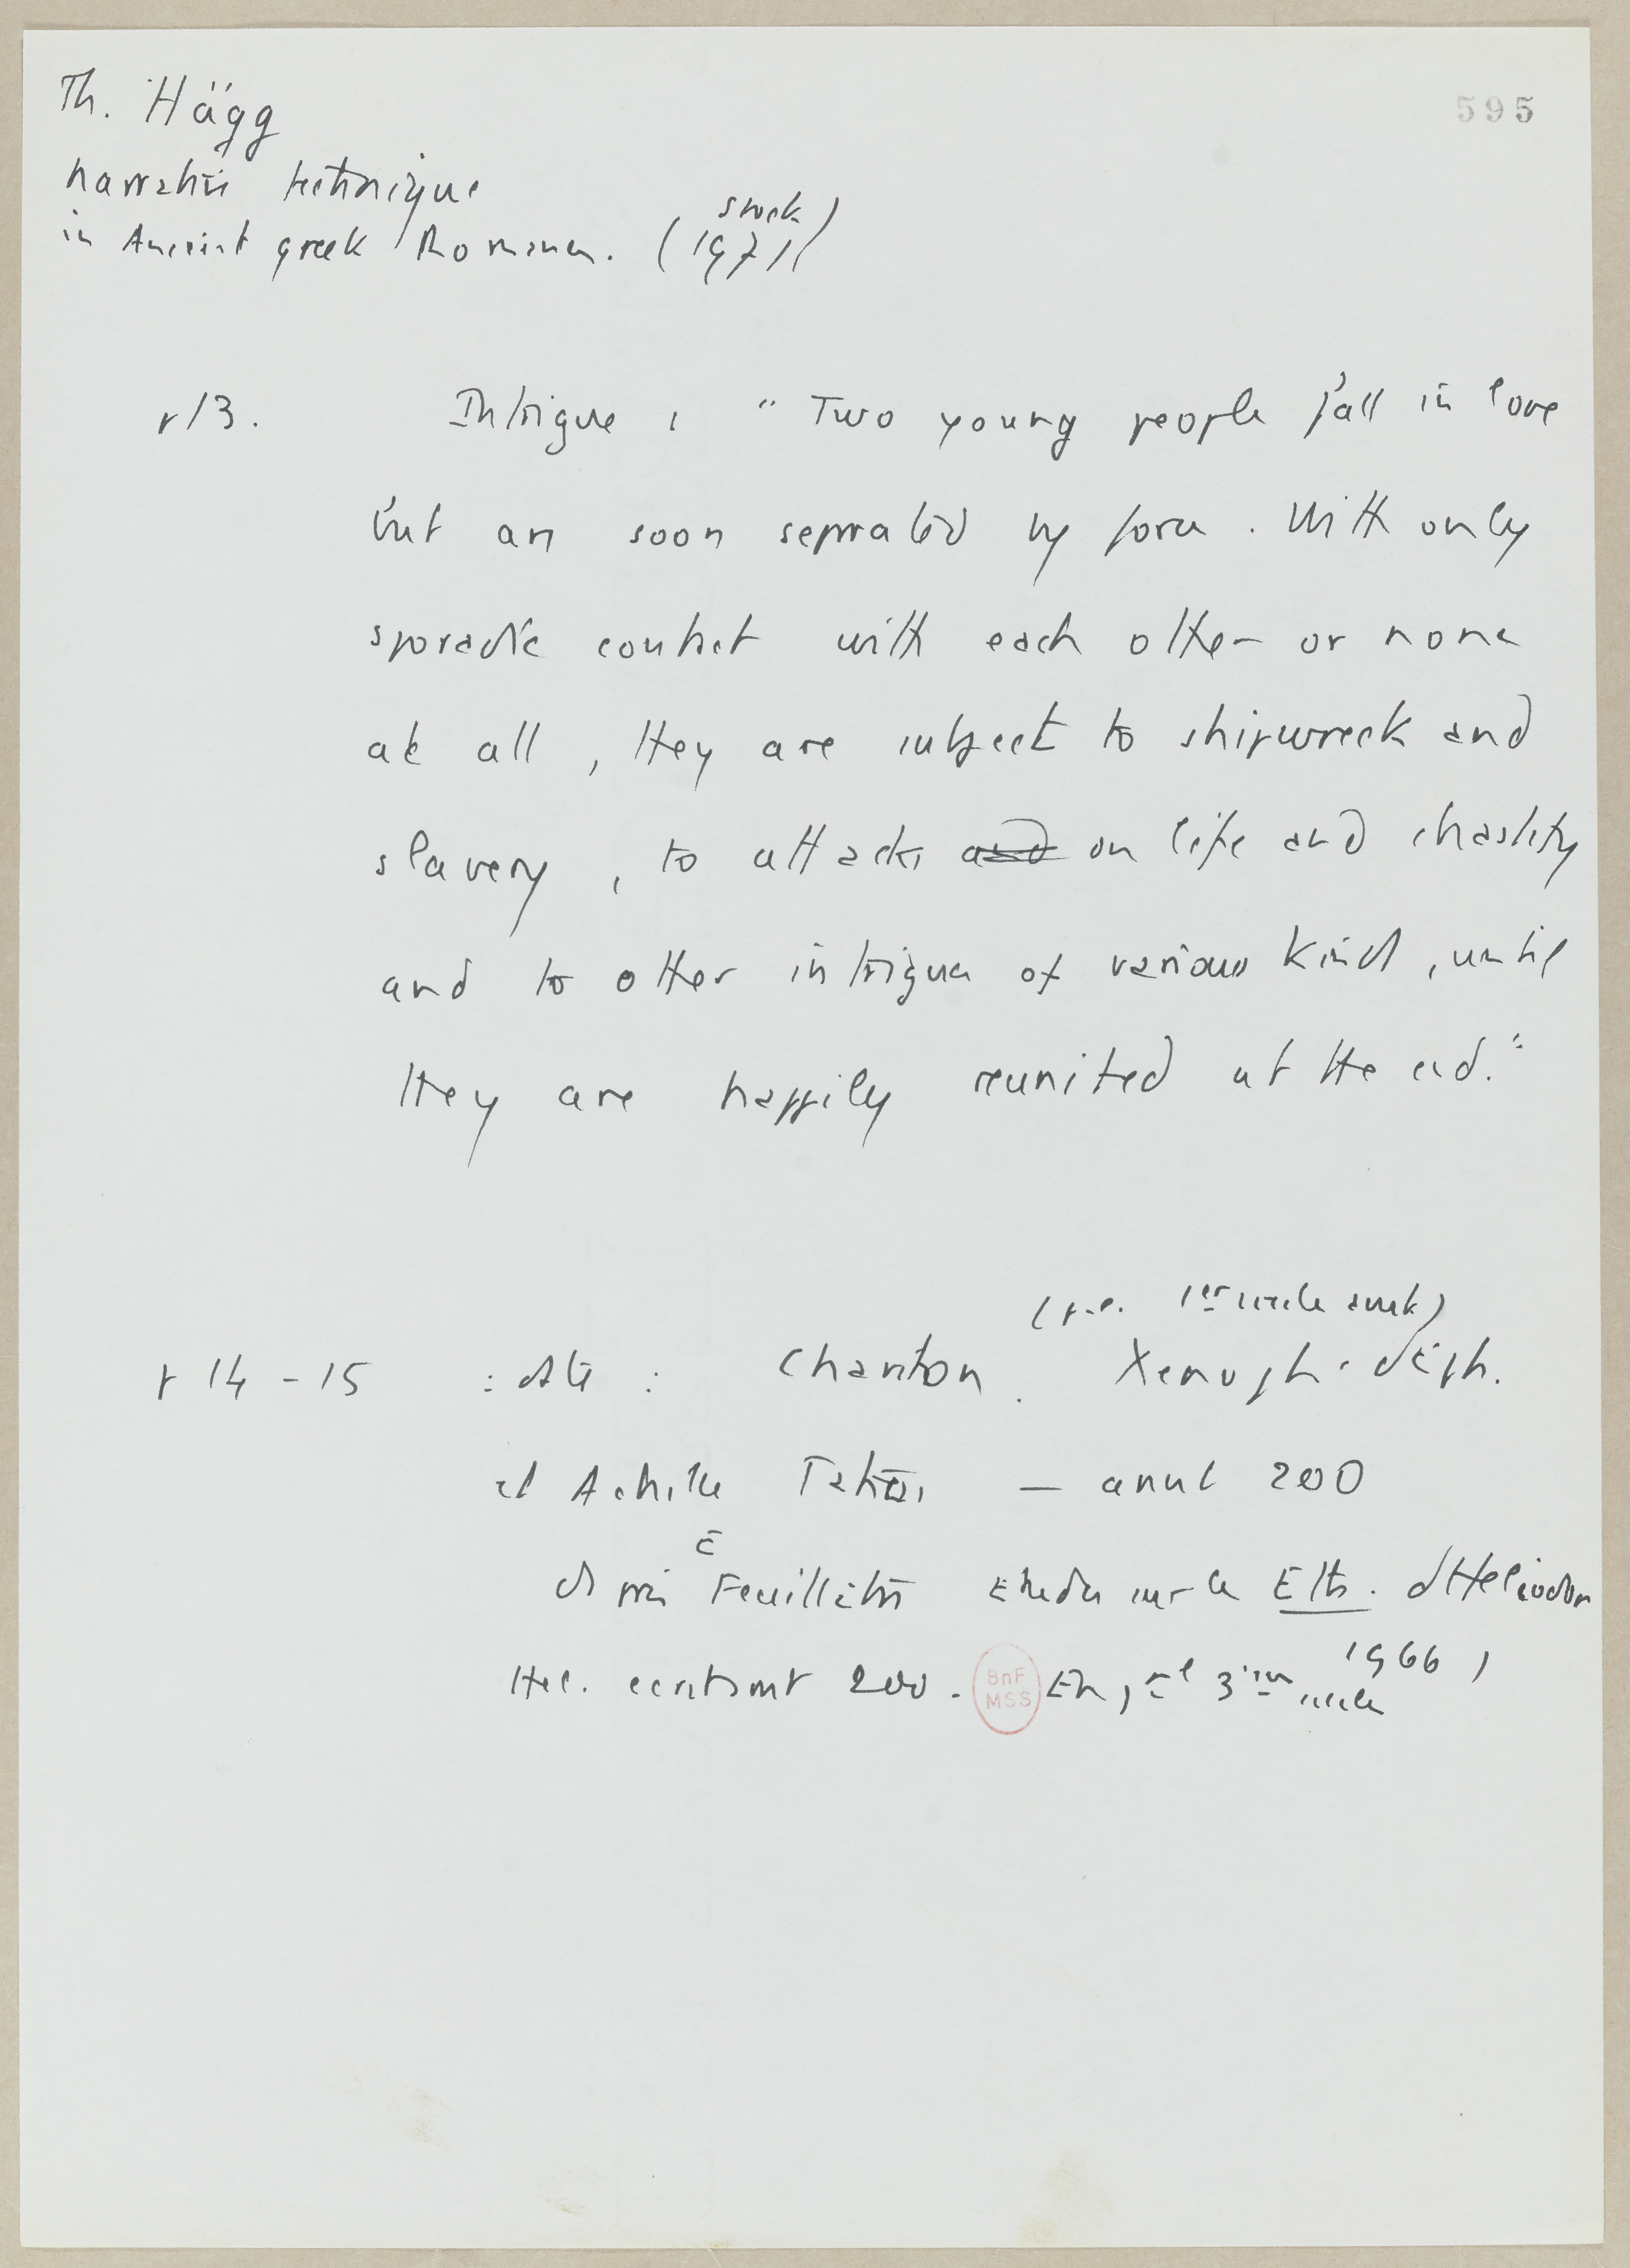 Th. Hägg
595
Narrative technique
in Ancient greek Romances. (Stock 1971)
p13. Intrigue : "Two young people fall in love
but are soon separated by force. With only
sporadic contact with each other or none
at all, they are subject to shipwreck and
slavery, to attacks and on life and chastity
and to other intrigues of various kinds, until
they are happily reunited at the end."
(p.e. 1er siècle avant)
p 14-15 : date : Chariton. Xenoph. d'Eph.
et Achille Tatius — avant 200
E Feuillâtre Etudes sur les Eth. d'Heliodore
1966)
Hel. 200. BnF MSS En 3ième siècle